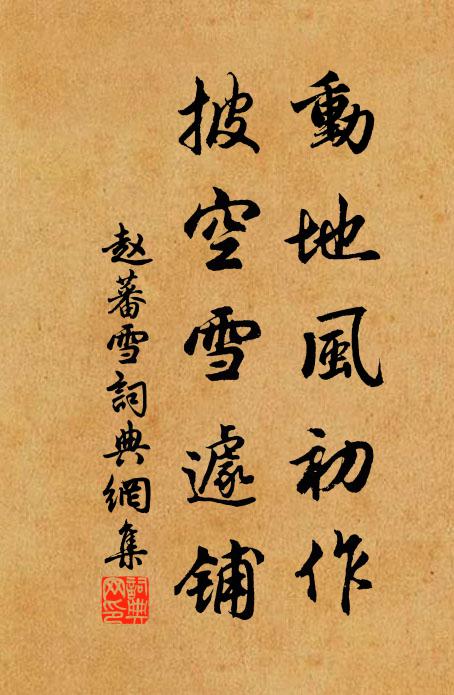 動地風初作
披空雪遽铺
赵蕃雪詞典網集
詞典
网印